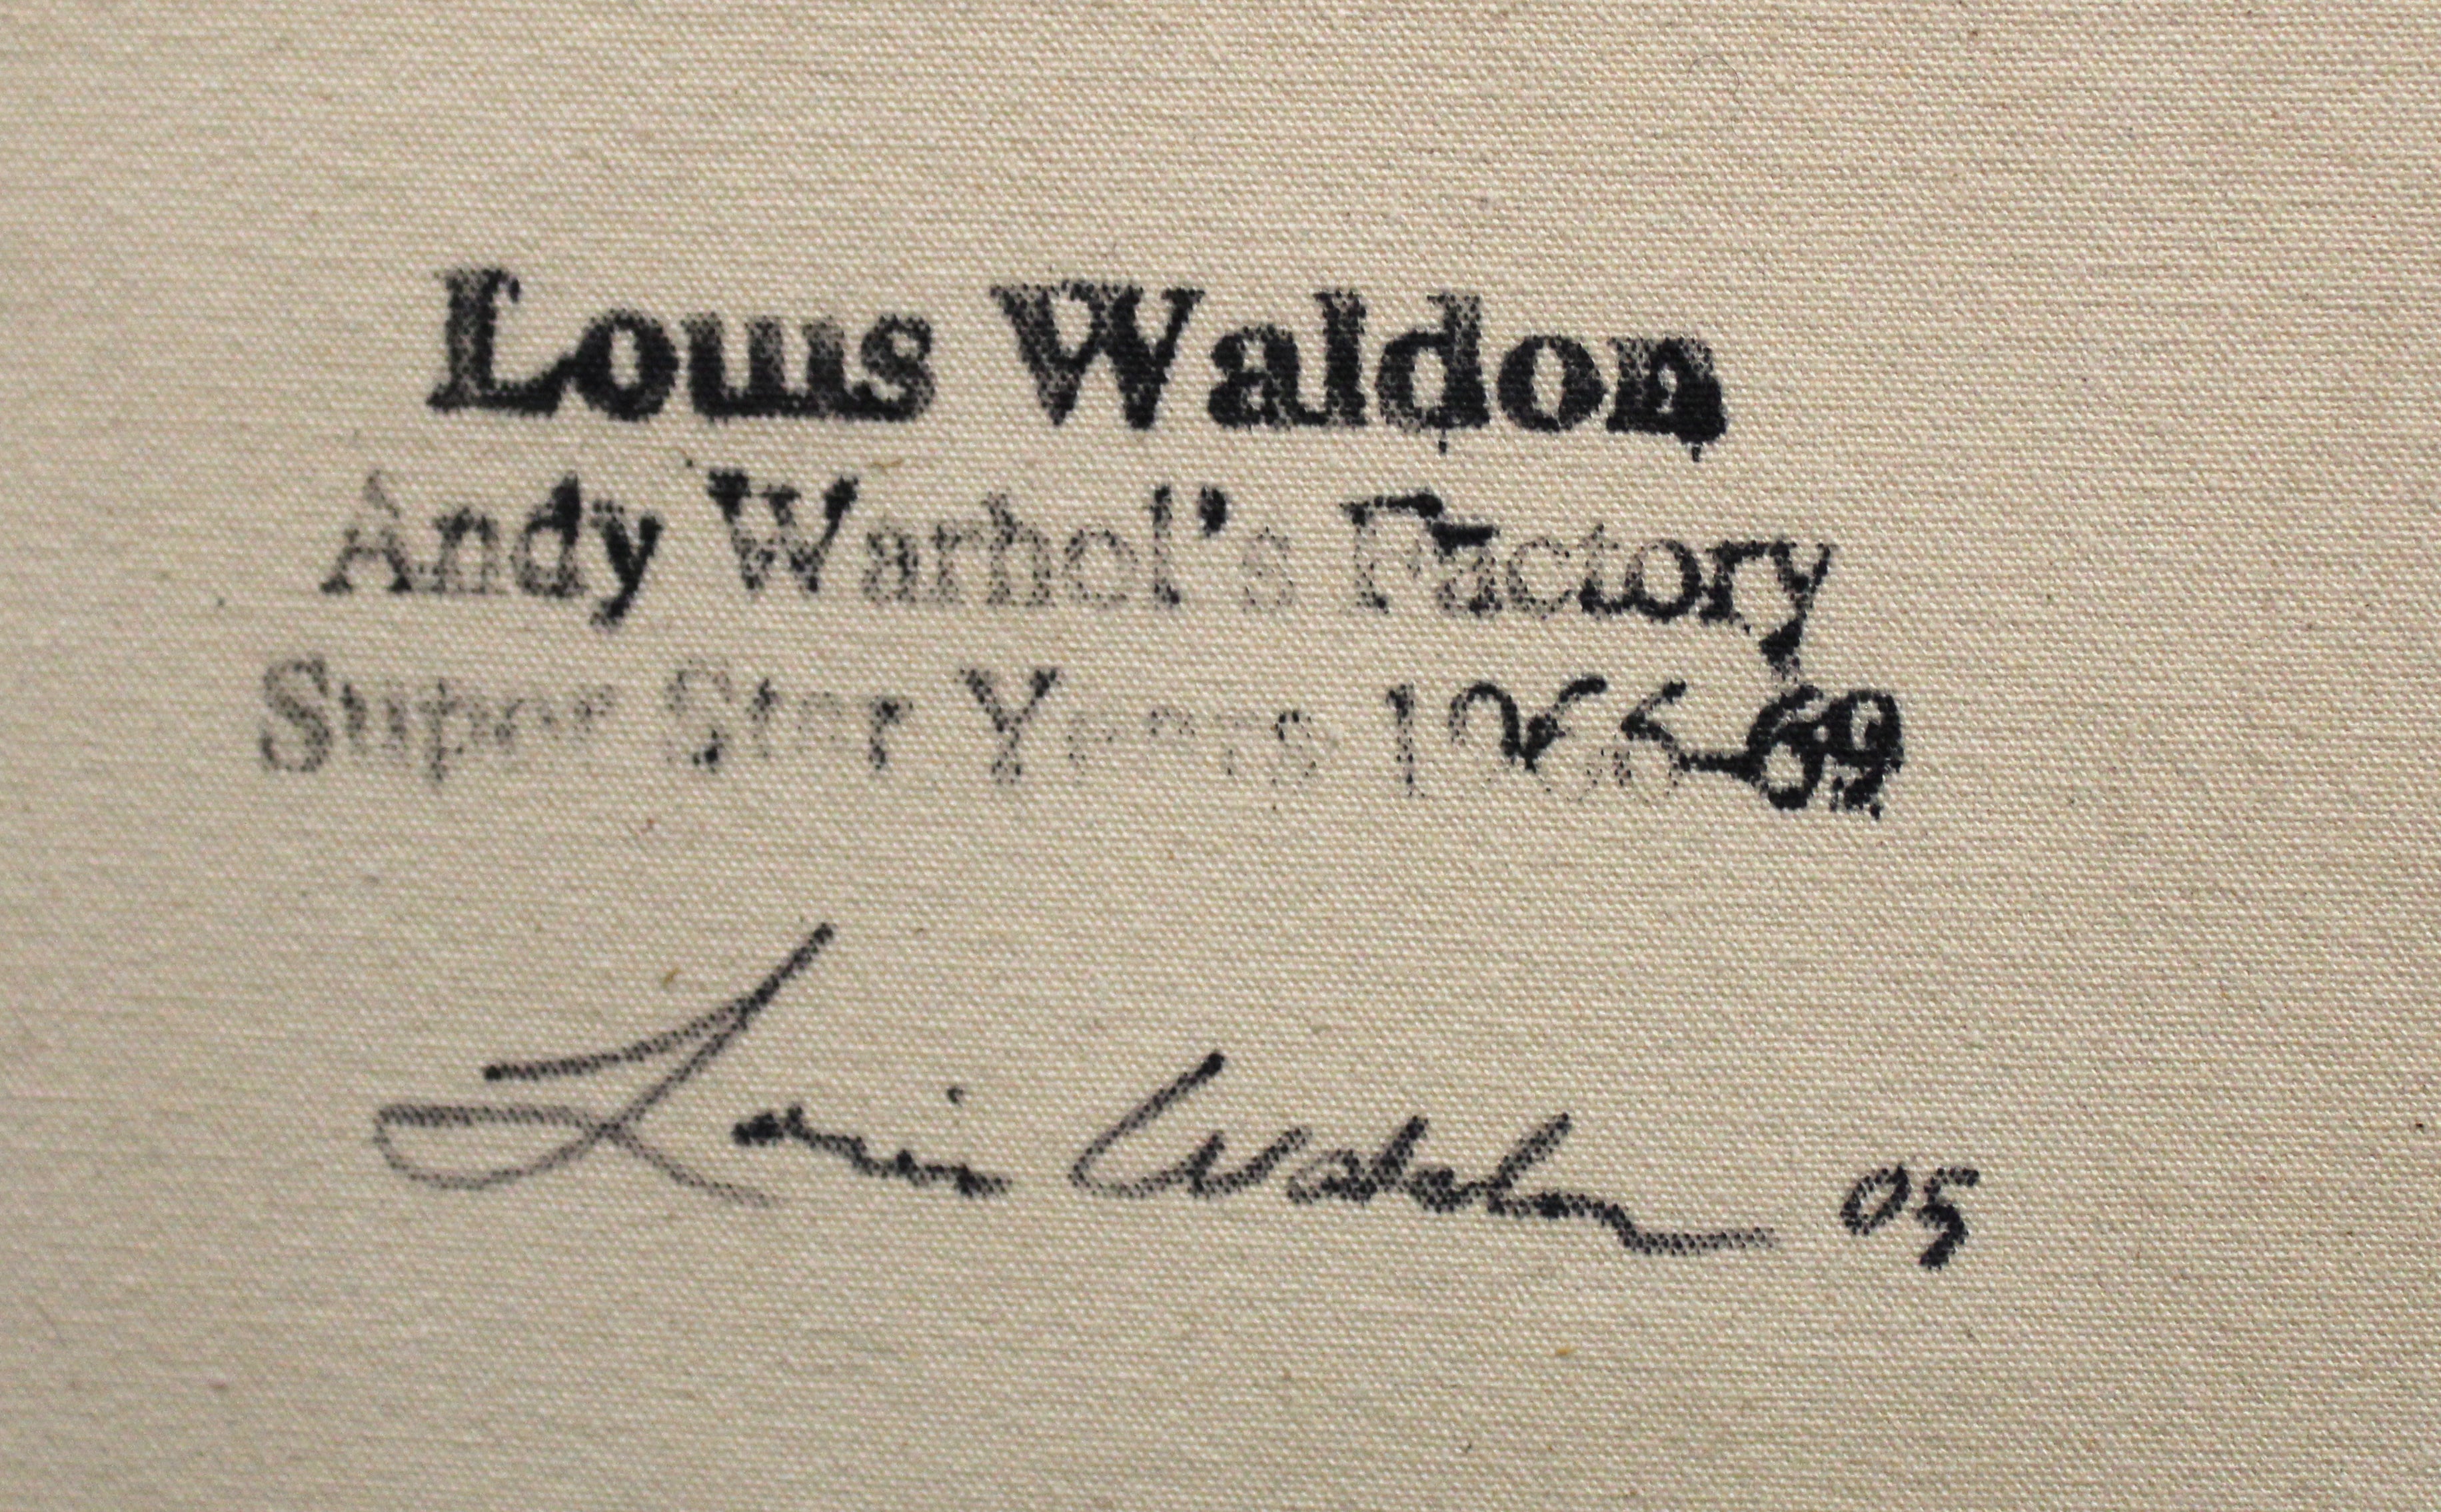 Louis Waldon
Andy Warhol's Factory
Super Star Years 1966-69
Louis Waldon 05